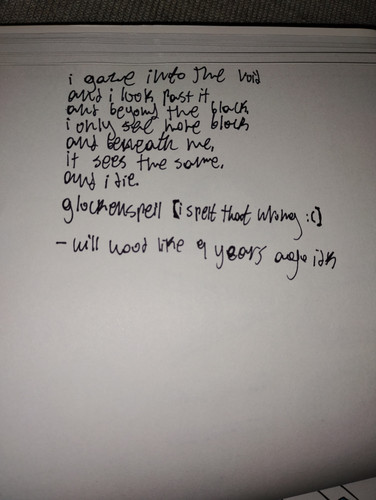 i gaze into the void
and i look past it
and beyond the black
i only see more black
and beneath me,
it sees the same.
and i die.
glockenspell [i spelt that wrong :(]
- will wood like 9 years ago idk